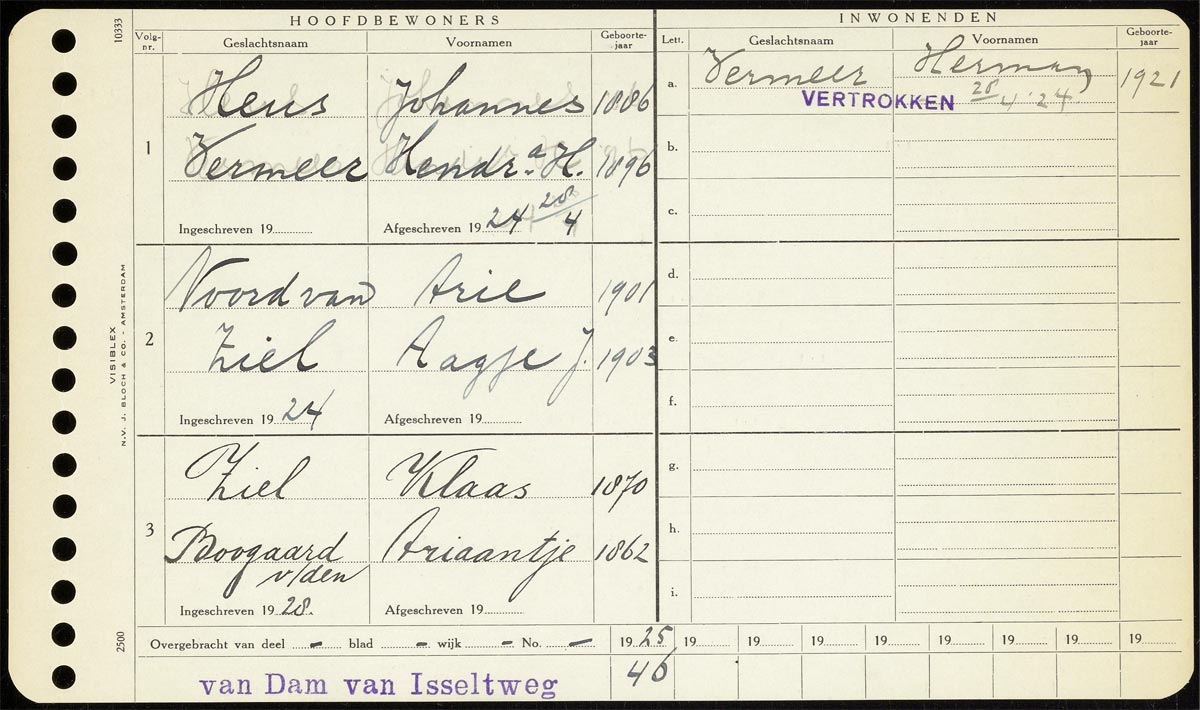 HOOFDBEWONERS
INWONENDEN
Volg-nr. Geslachtsnaam Voornamen Geboorte-jaar
Lett. Geslachtsnaam Voornamen Geboorte-jaar
1
Heus Johannes 1886
Vermeer Hendr.a H. 1896
Ingeschreven 19 Afgeschreven 19 24 28/4
2
Noord van Arie 1901
Ziel Aagje J. 1903
Ingeschreven 19 24 Afgeschreven 19
3
Ziel Klaas 1870
Boogaard Ariaantje 1862
v/den
Ingeschreven 19 28. Afgeschreven 19
a. Vermeer Herman 1921
VERTROKKEN 28/4 '24
b.
c.
d.
e.
f.
g.
h.
i.
Overgebracht van deel - blad - wijk - No. - 19 25 19 19 19 19 19 19 19 19
46
van Dam van Isseltweg
10333
VISIBLEX
N.V. J. BLOCH & CO. - AMSTERDAM
2500